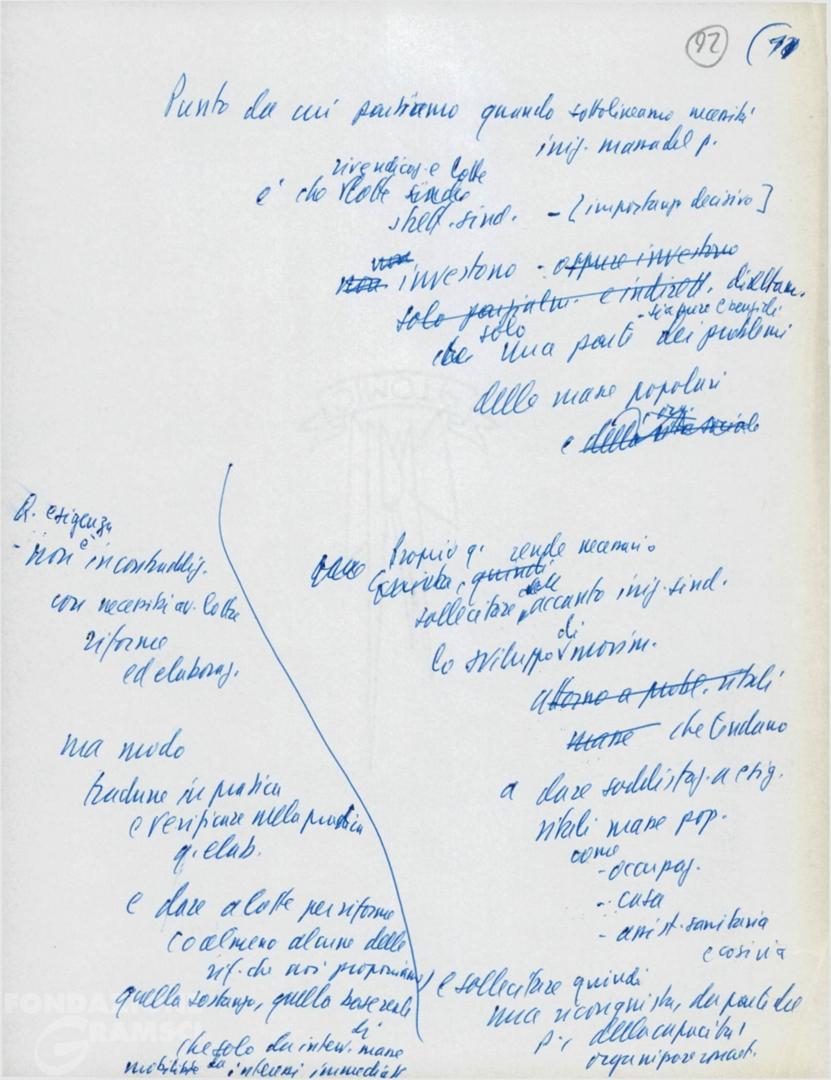 92 (11
Punto da cui partiamo quando sottolineamo necessità
iniz. massa del p.
rivendicaz. e lotte
è che lotte sindac
strett. sind. - [importanza decisiva]
non
non investono - oppure investono
solo parzialm. e indirett. direttam.
solo - sia pure essenziali
che una parte dei problemi
delle masse popolari
e della vita sociale
Q. esigenza
- non è in contraddiz.
con necessità av. lotta
riforme
ed elaboraz.
ma modo
tradurre in pratica
e verificare nella pratica
q. elab.
e dare a lotte per riforme
(o almeno alcune delle
rif. che noi proponiamo)
quella sostanza, quella base reale
di
che solo da interv. masse
mobilitate da interessi immediati
Proprio q. rende necessario
quindi
sollecitare accanto iniz. sind.
di
lo sviluppo movim.
attorno a probl. vitali
masse che tendano
a dare soddisfaz. a esig.
vitali masse pop.
come
- occupaz.
- casa
- assist. sanitaria
e così via
e sollecitare quindi
una riconquista, da parte del
p., della capacità
organizzare
FONDAZIONE
GRAMSCI